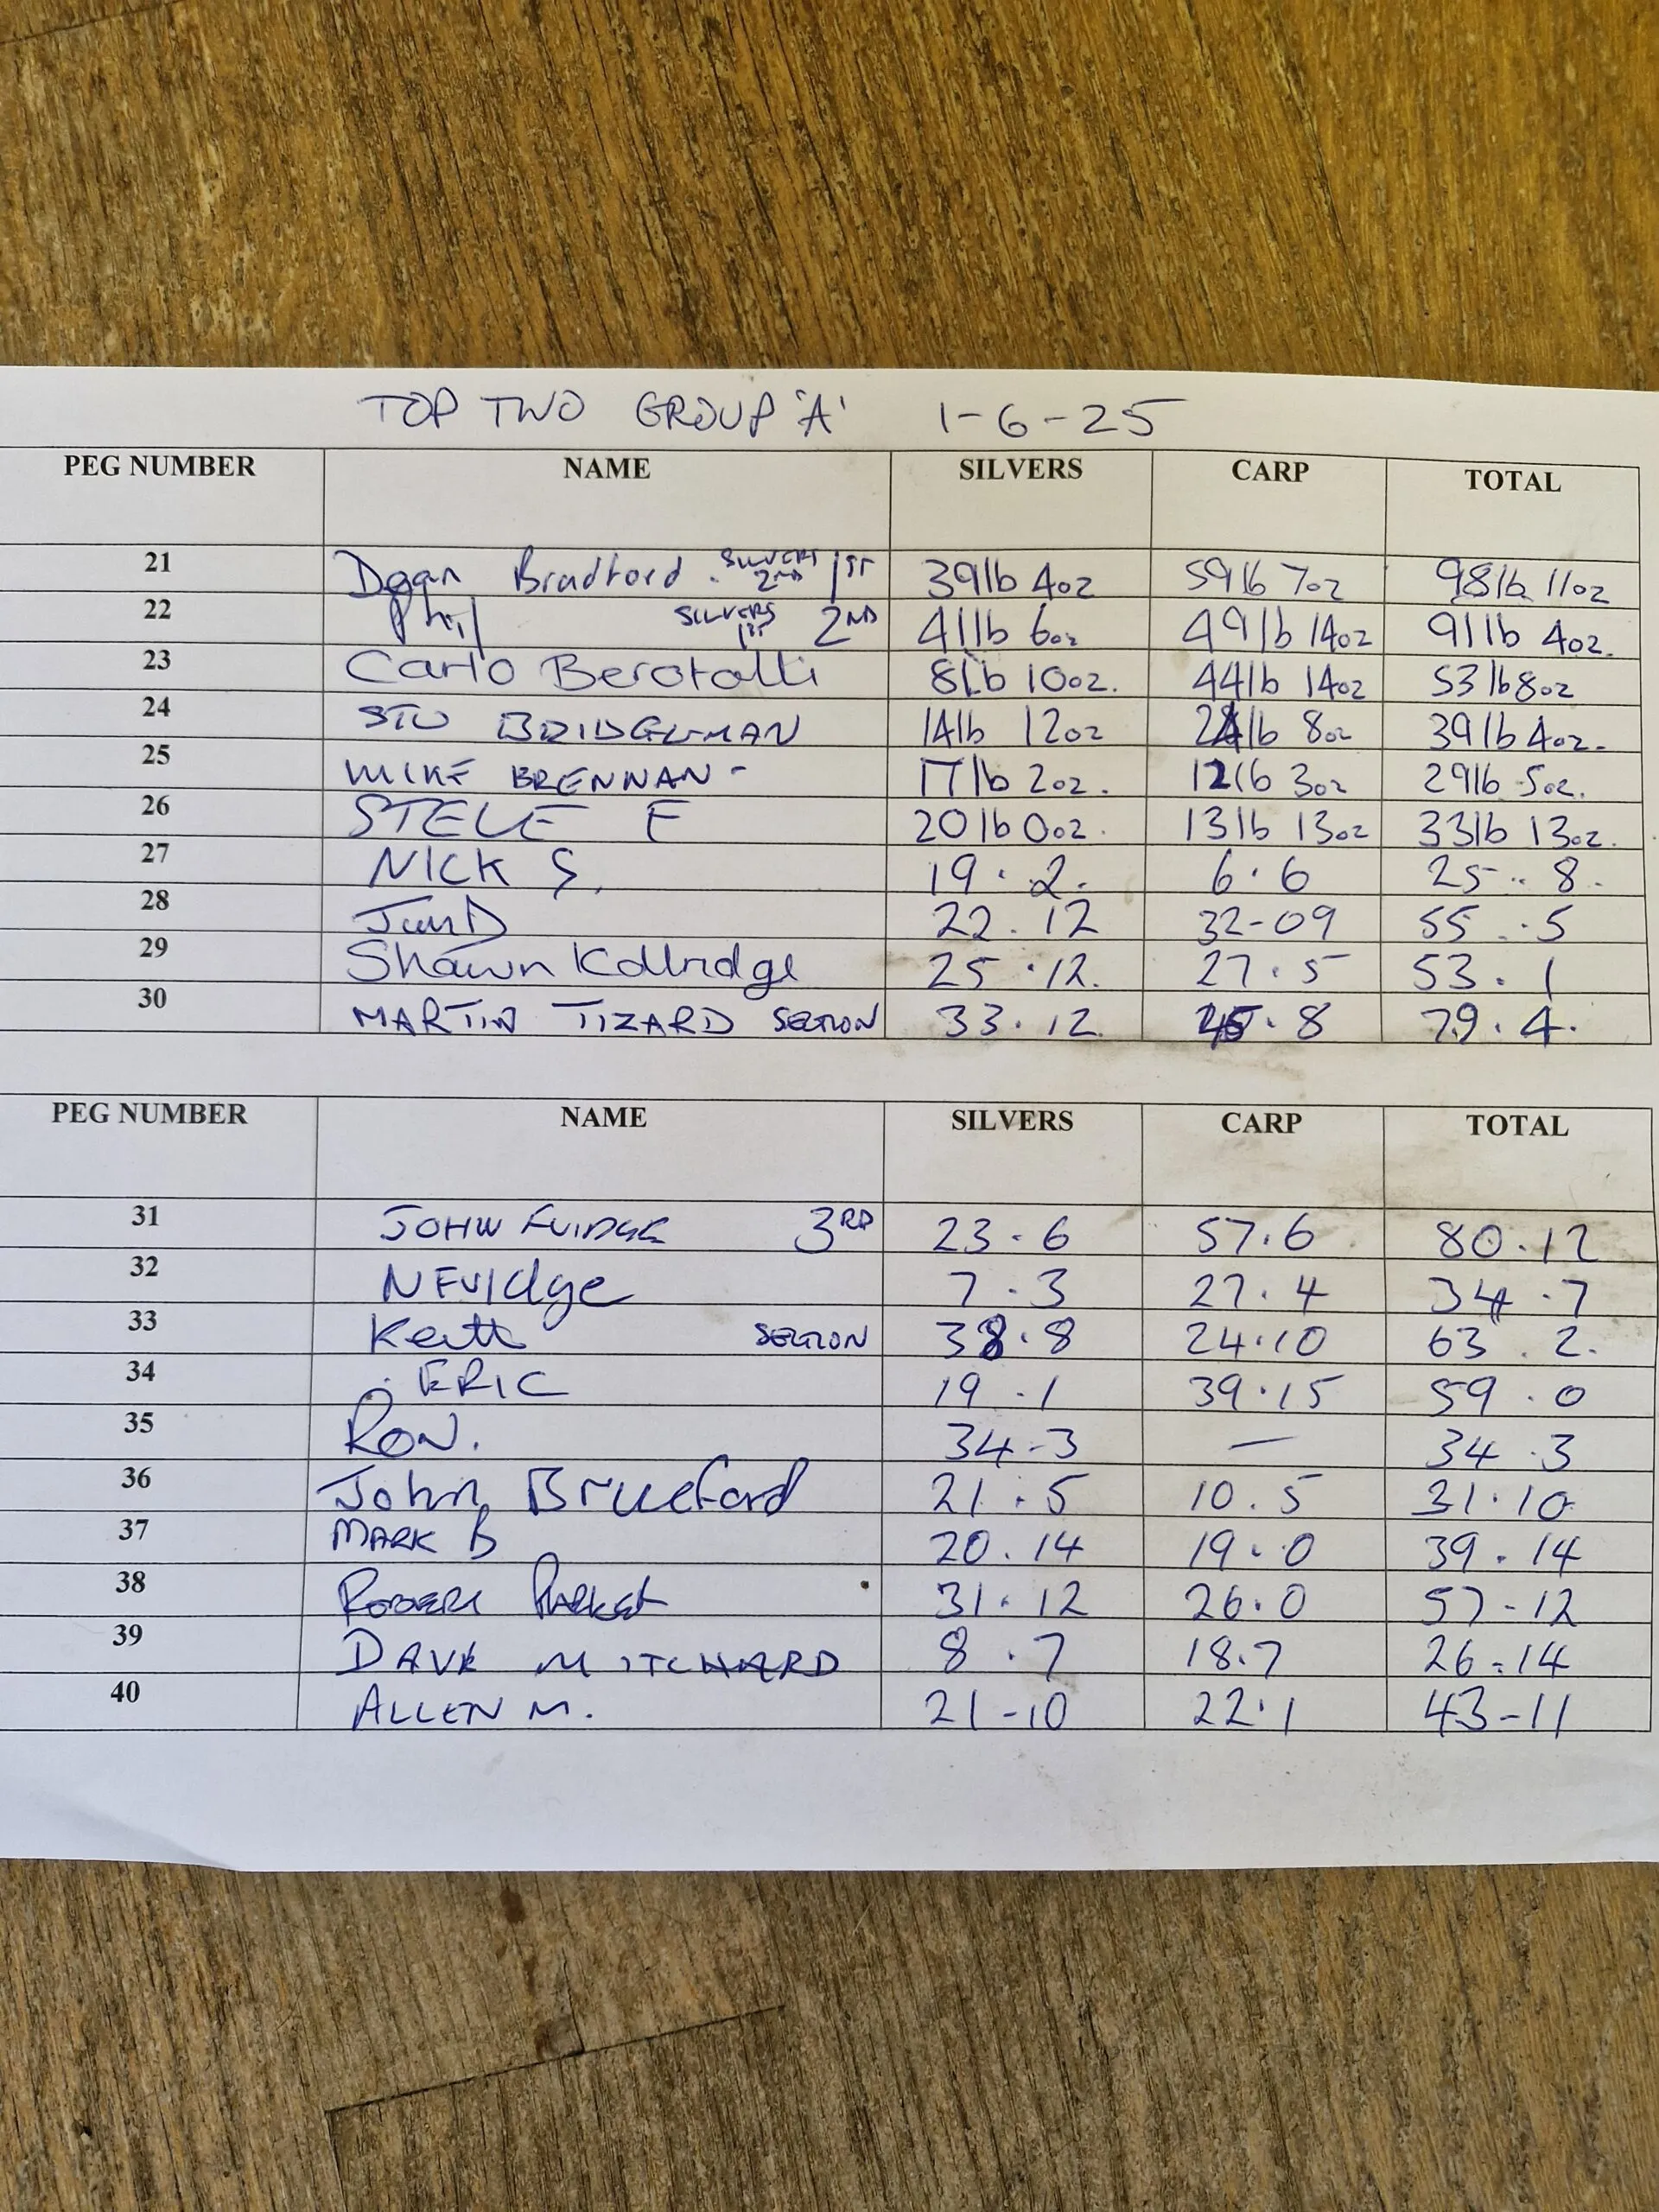 TOP TWO GROUP 'A' 1-6-25
PEG NUMBER NAME SILVERS CARP TOTAL
21 Dean Bradford . SILVERS 2ND 1ST 39lb 4oz 59lb 7oz 98lb 11oz
22 Phil SILVERS 1ST 2ND 41lb 6oz 49lb 14oz 91lb 4oz.
23 Carlo Berotalli 8lb 10oz. 44lb 14oz 53lb 8oz
24 STU BRIDGEMAN 14lb 12oz 24lb 8oz 39lb 4oz.
25 MIKE BRENNAN - 17lb 2oz. 12lb 3oz 29lb 5oz.
26 STEVE F 20lb 0oz. 13lb 13oz 33lb 13oz.
27 NICK S. 19.2. 6.6 25..8.
28 22.12 32-09 55.5
29 Shawn Kittridge 25.12. 27.5 53.1
30 MARTIN TIZARD SECTION 33.12. 45.8 79.4.
PEG NUMBER NAME SILVERS CARP TOTAL
31 JOHN FUIDGE 3RD 23.6 57.6 80.12
32 N FUIdge 7.3 27.4 34.7
33 Keith SECTION 38.8 24.10 63.2.
34 ERIC 19.1 39.15 59.0
35 RON. 34-3 — 34.3
36 John Brueford 21.5 10.5 31.10
37 MARK B 20.14 19.0 39.14
38 31.12 26.0 57-12
39 DAVE MITCHARD 8.7 18.7 26-14
40 ALLEN M. 21-10 22.1 43-11